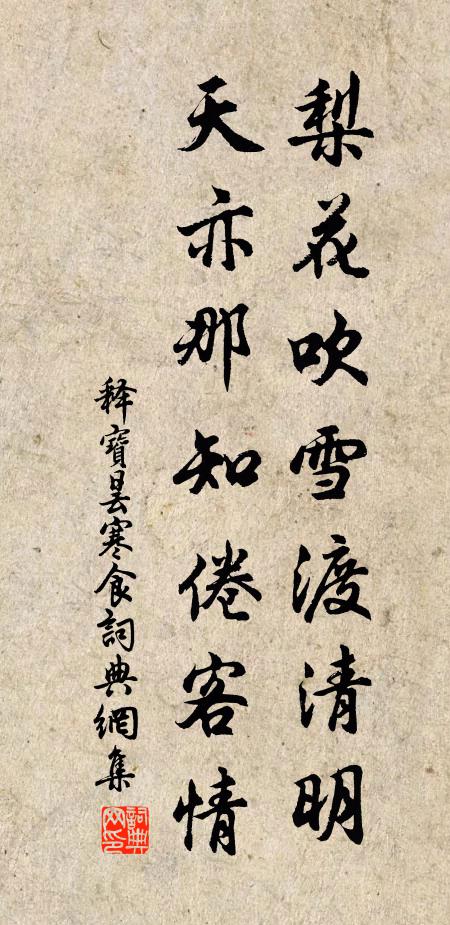 梨花吹雪渡清明
天亦那知倦客情
释寶昙寒食詞典網集
詞典網印